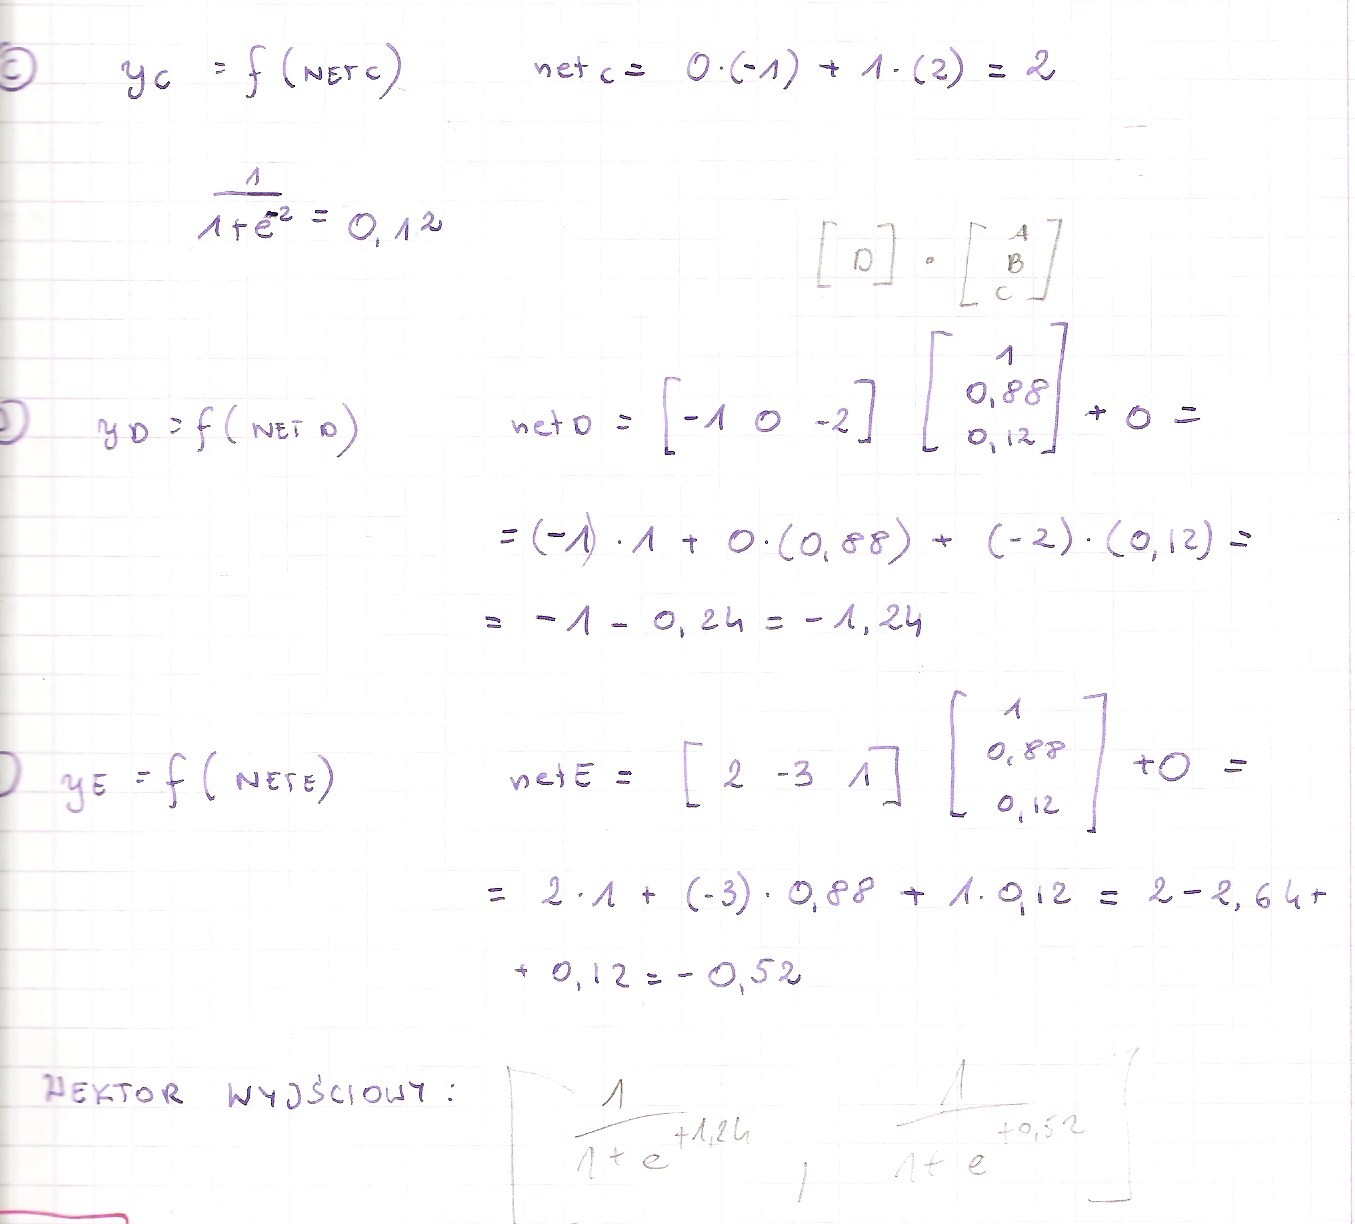 C yC = f (NETC) netC = 0·(-1) + 1·(2) = 2
1/(1+e^-2) = 0,12
[D] · [A B C]
yD = f (NET D) netD = [-1 0 -2] [1 0,88 0,12] + 0 =
= (-1)·1 + 0·(0,88) + (-2)·(0,12) =
= -1 - 0,24 = -1,24
yE = f (NETE) netE = [2 -3 1] [1 0,88 0,12] +0 =
= 2·1 + (-3)·0,88 + 1·0,12 = 2-2,64+
+ 0,12 = -0,52
WEKTOR WYJŚCIOWY: [1/(1+e^+1,24) , 1/(1+e^+0,52)]